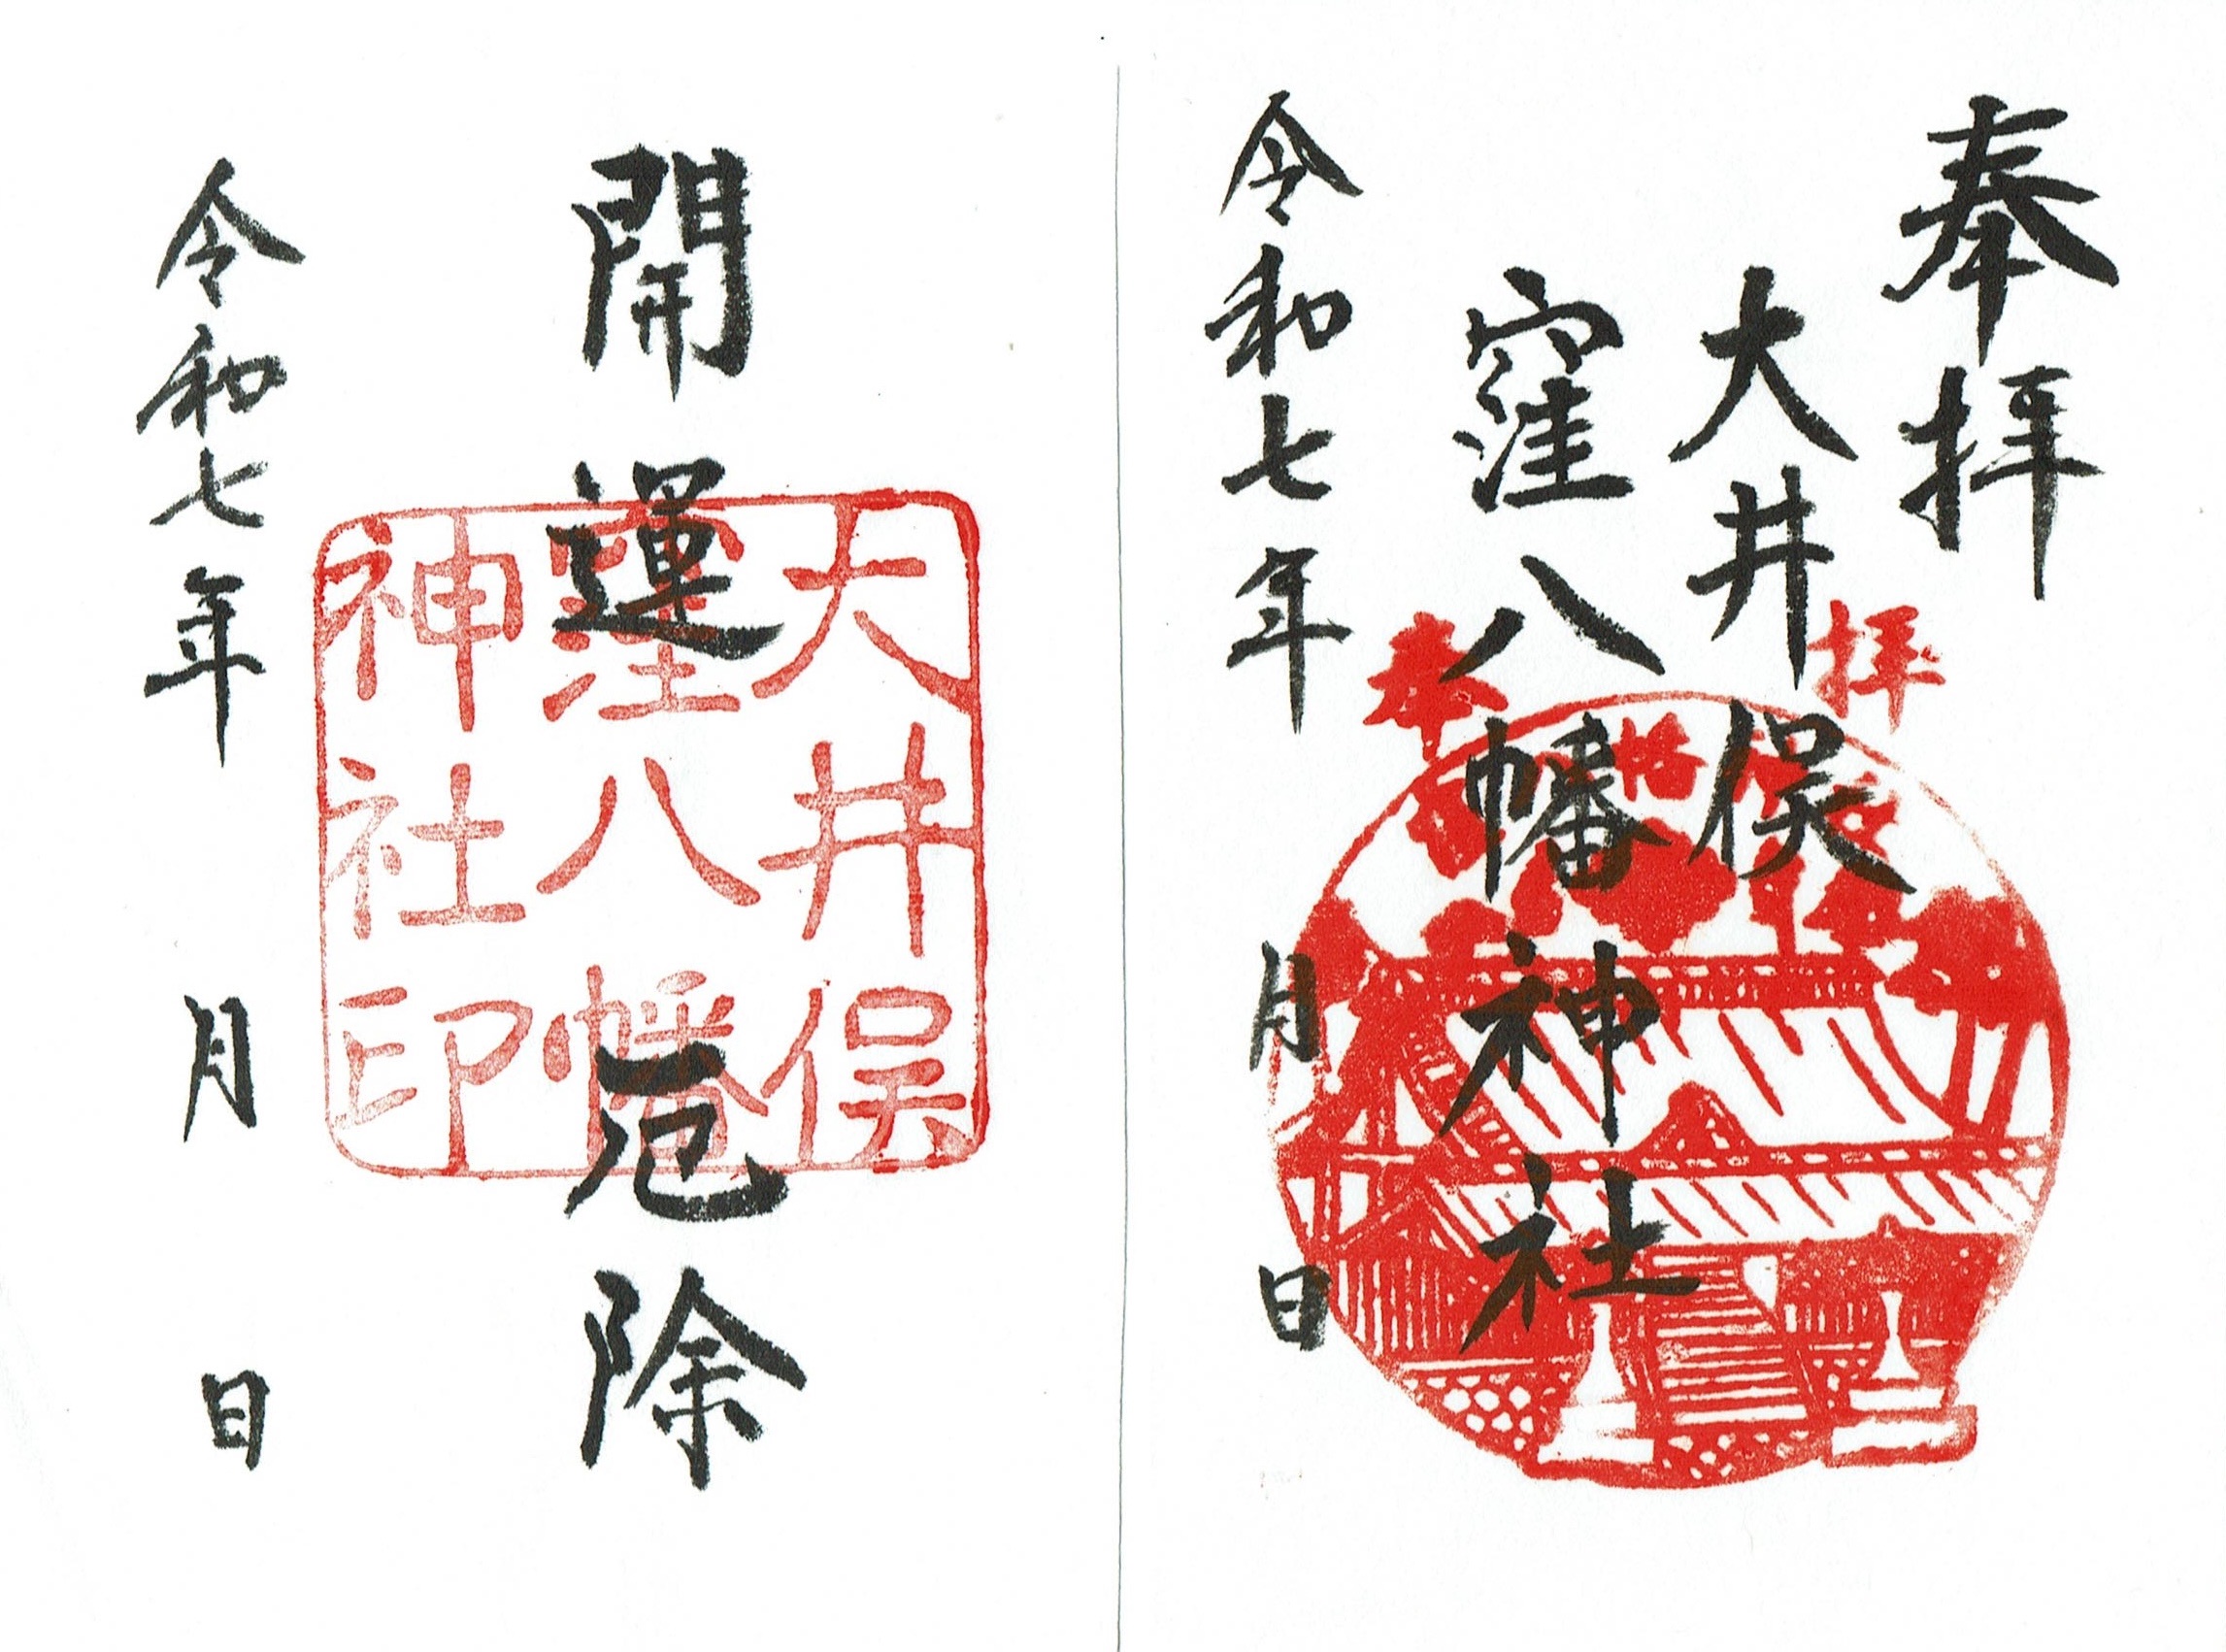 奉拝
大井俣
窪八幡神社
令和七年 月 日
奉拝
開運厄除
大井俣
窪八幡
神社印
令和七年 月 日